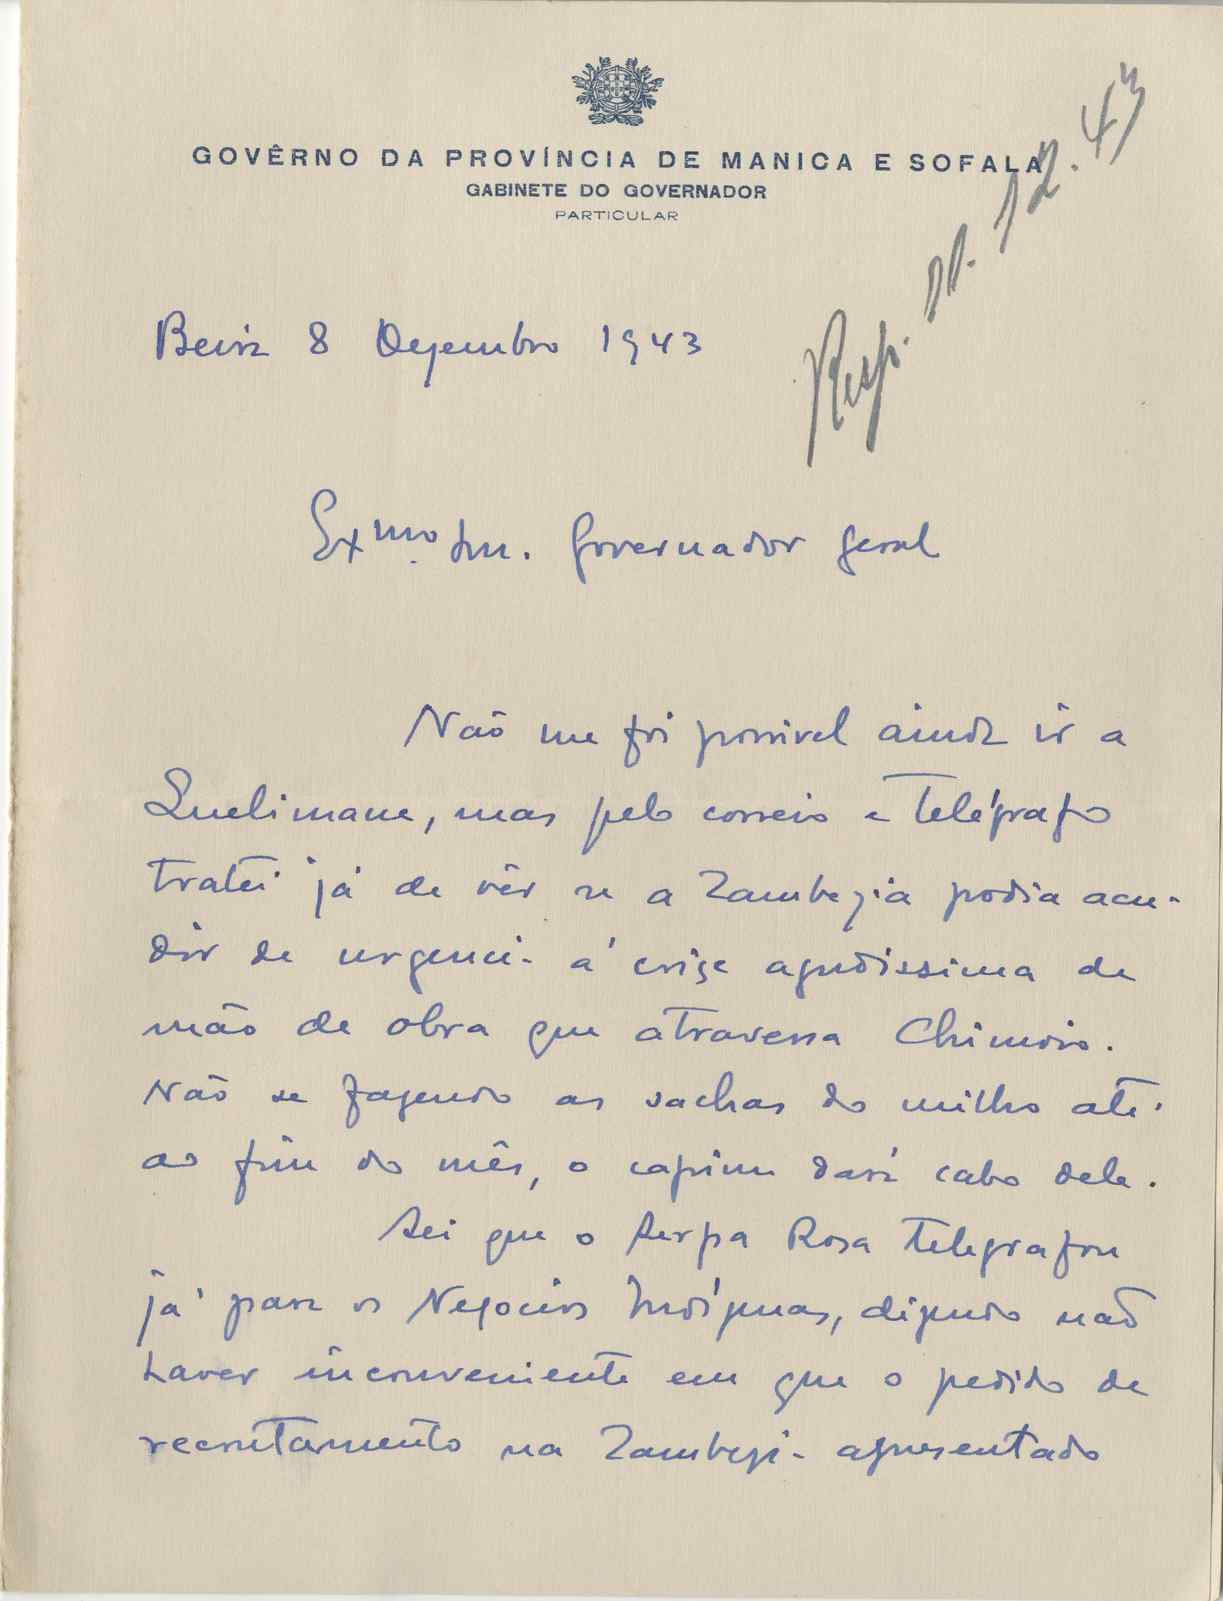 GOVÊRNO DA PROVÍNCIA DE MANICA E SOFALA
GABINETE DO GOVERNADOR
PARTICULAR
Resp. 11.12.43
Beira 8 Dezembro 1943
Exmo. Snr. Governador Geral
Não me foi possivel ainda ir a
Quelimane, mas pelo correio e telégrafo
tratei já de vêr se a Zambezia podia acu-
dir de urgencia á crise agudissima de
mão de obra que atravessa Chimoio.
Não se fazendo as sachas do milho até
ao fim do mês, o capim dará cabo dele.
Sei que o Serpa Rosa telegrafou
já para os Negocios Indígenas, dizendo não
haver inconveniente em que o pedido de
recrutamento na Zambezia apresentado